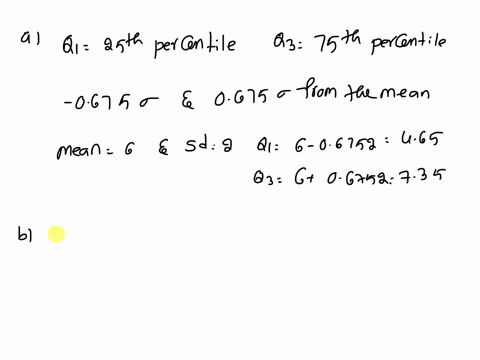 a) Q1 = 25th percentile Q3 = 75th percentile
-0.675 σ & 0.675 σ from the mean
mean = 6 & sd: 2 Q1 = 6-0.6752 = 4.65
Q3 = 6+ 0.6752 = 7.35
b)